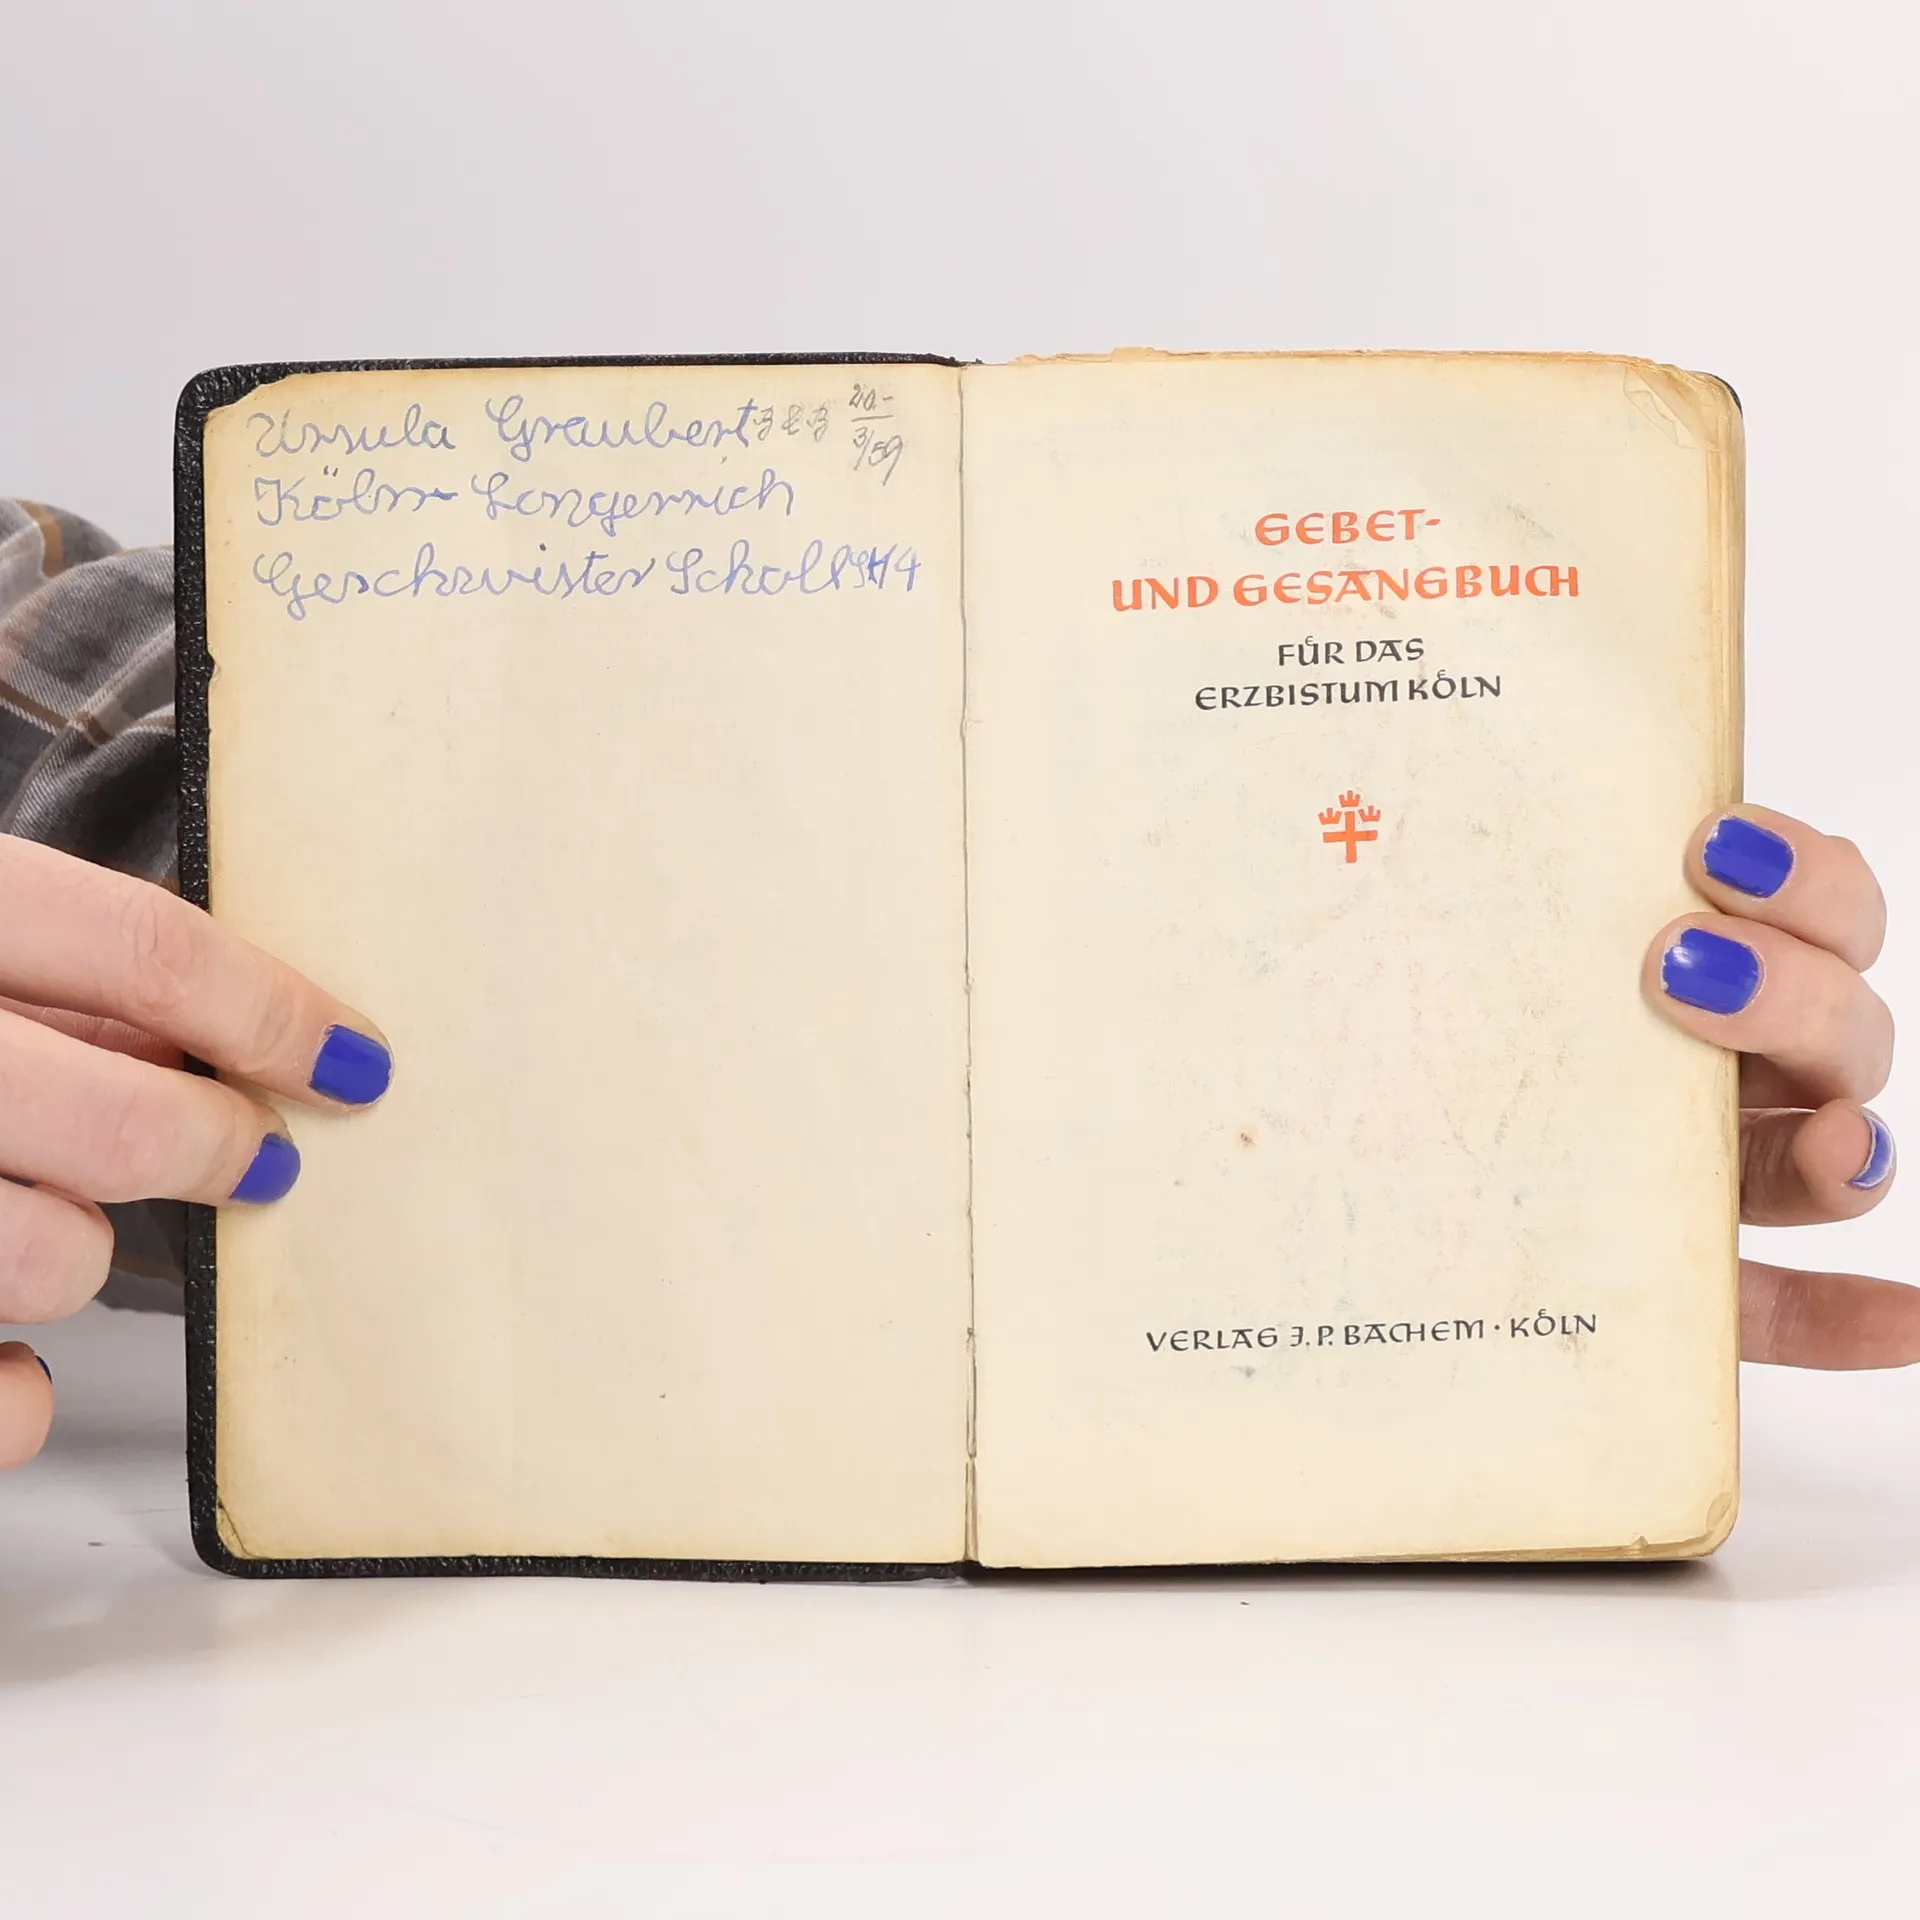 Ursula Graubert
20.-
3/59
Köln-Longerrich
Geschwister Scholl Str 4
GEBET-
UND GESANGBUCH
FÜR DAS
ERZBISTUM KÖLN
VERLAG J. P. BACHEM · KÖLN